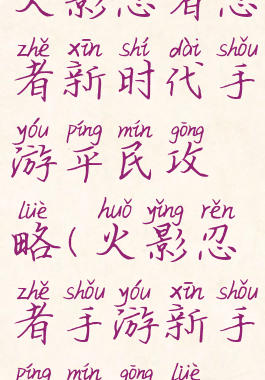 火影忍者忍
zhě xīn shí dài shǒu
者新时代手
yóu píng mín gōng
游平民攻
lüè huǒ yǐng rěn
略(火影忍
zhě shǒu yóu xīn shǒu
者手游新手
píng mín gōng lüè